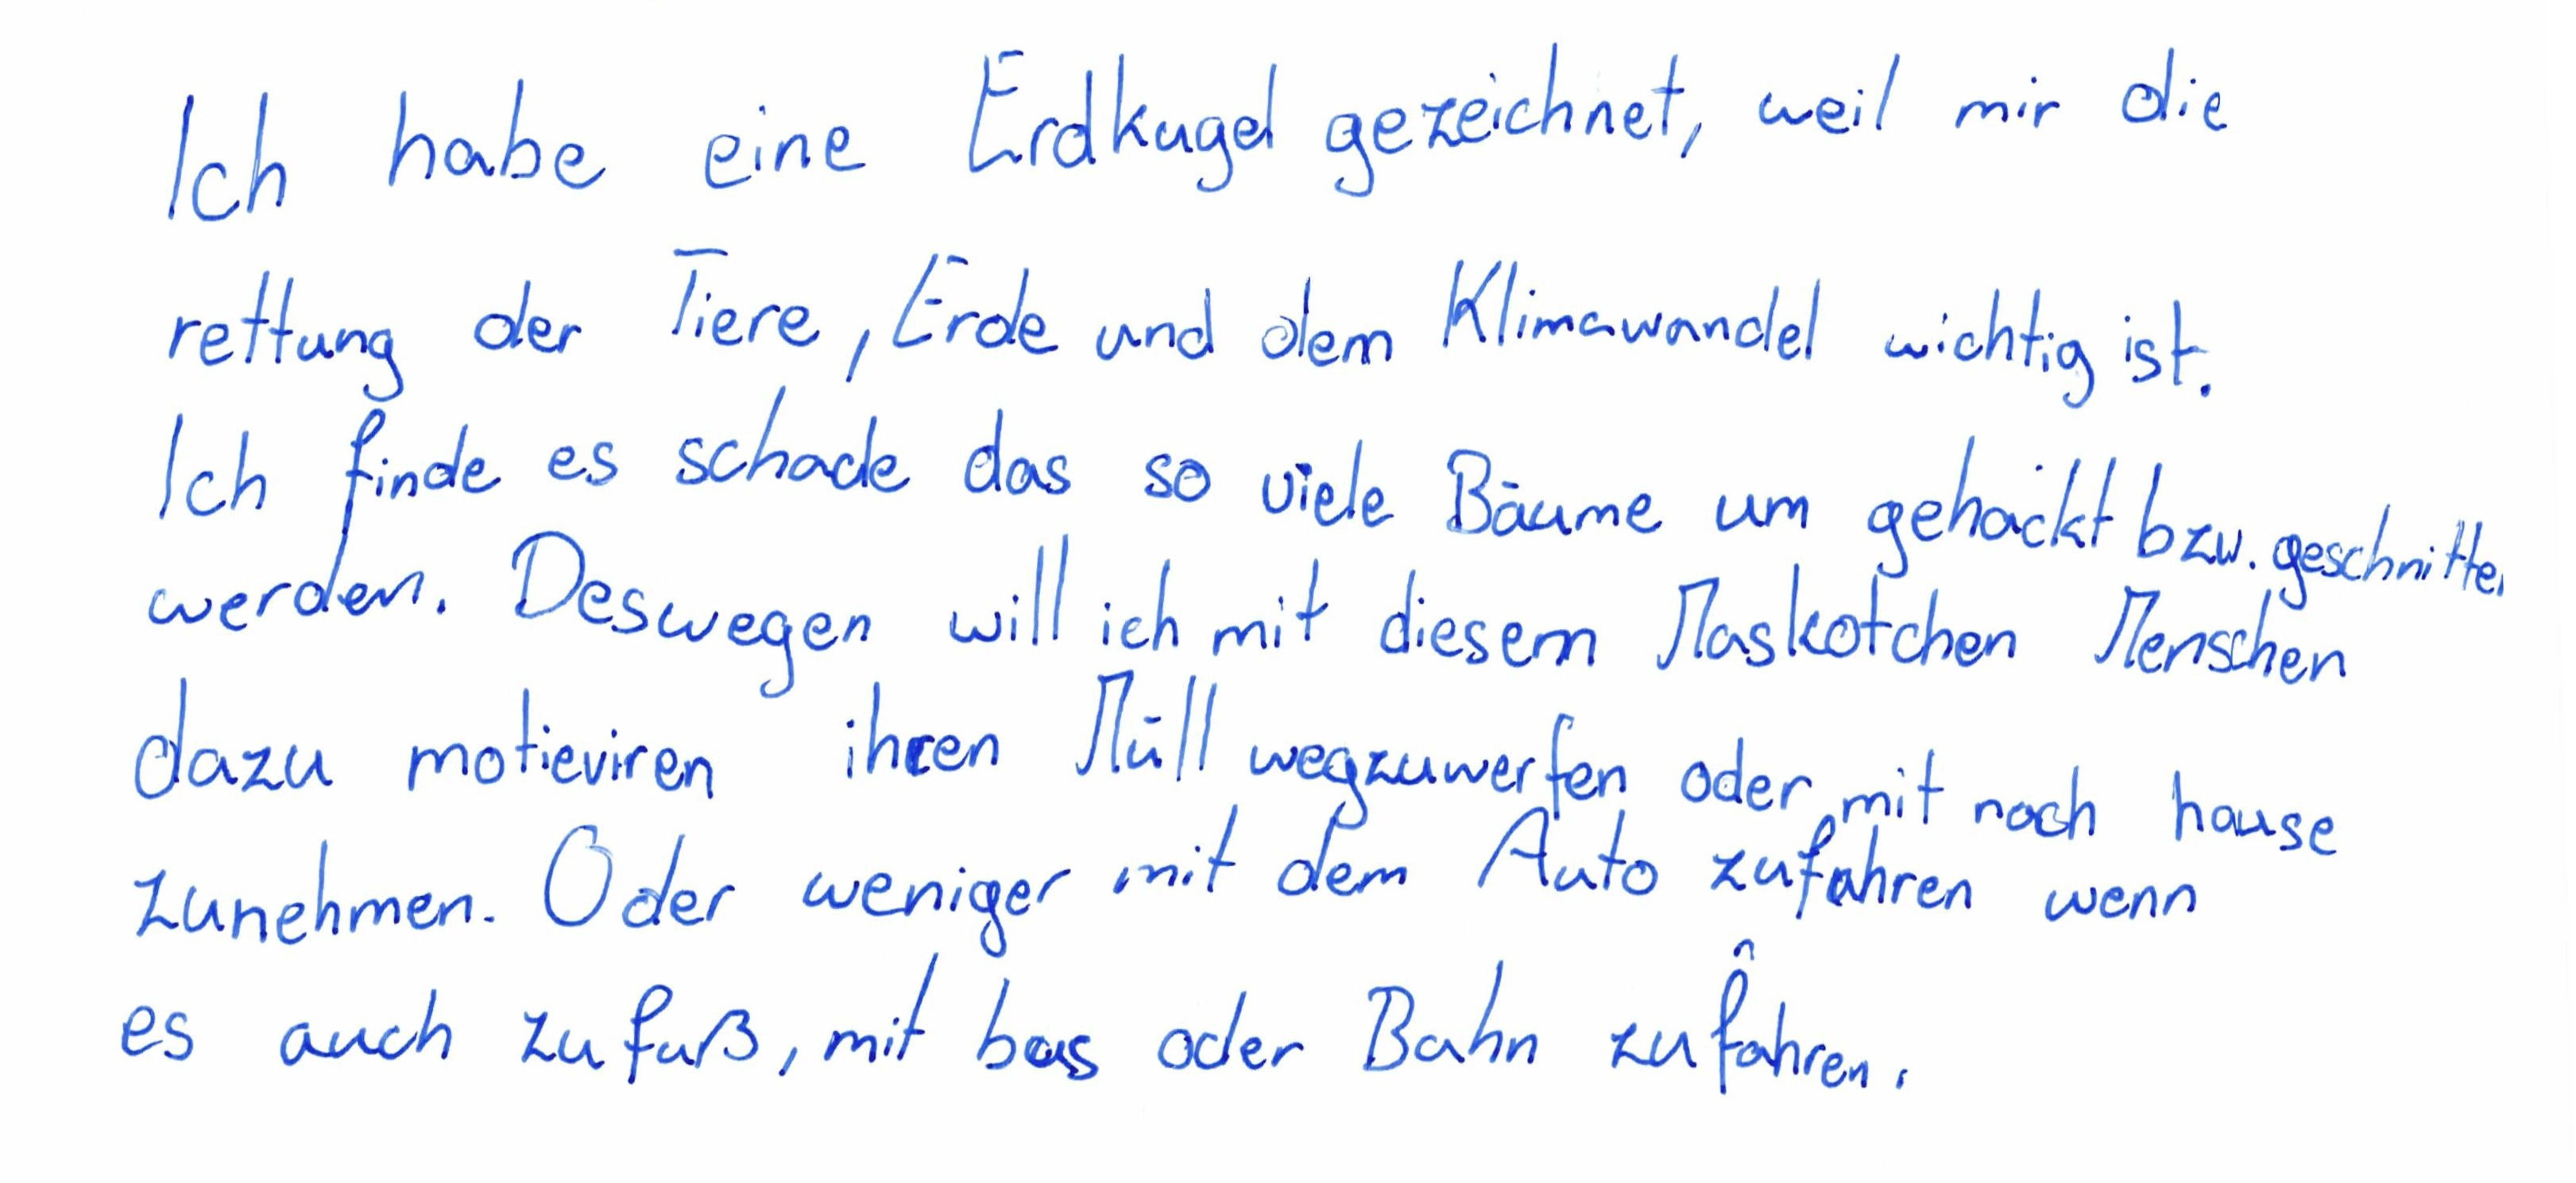 Ich habe eine Erdkugel gezeichnet, weil mir die
rettung der Tiere, Erde und dem Klimawandel wichtig ist.
Ich finde es schade das so viele Bäume um gehackt bzw. geschnitten
werden. Deswegen will ich mit diesem Maskotchen Menschen
dazu motieviren ihren Müll wegzuwerfen oder mit nach hause
zunehmen. Oder weniger mit dem Auto zufahren wenn
es auch zu fuß, mit bus oder Bahn zu fahren.